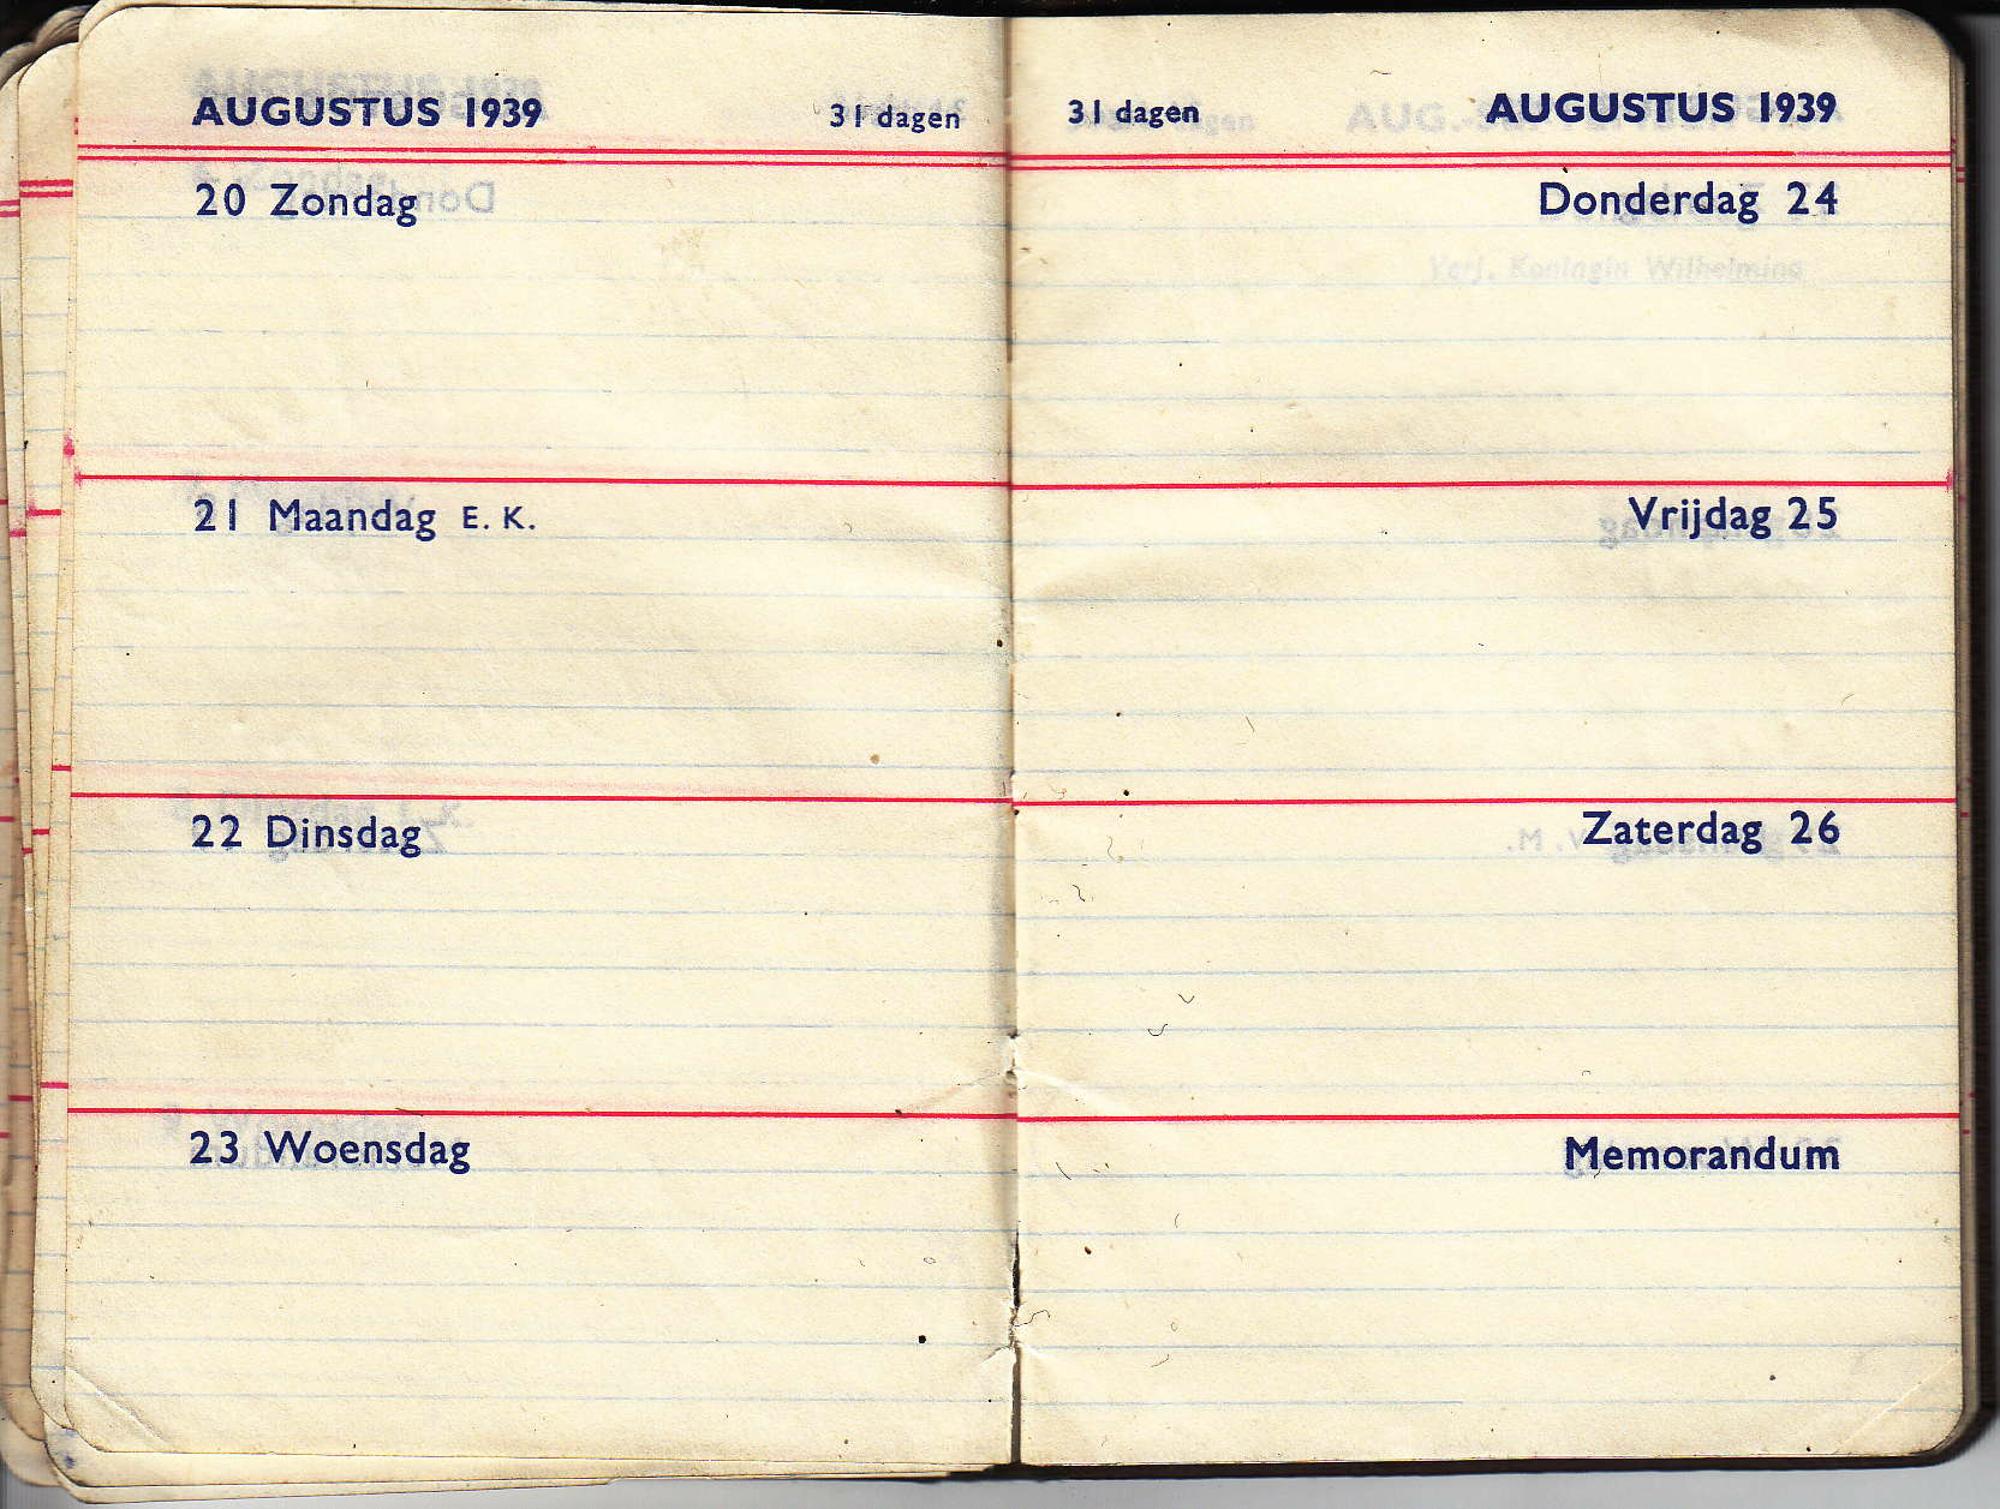 AUGUSTUS 1939 31 dagen
20 Zondag
21 Maandag E. K.
22 Dinsdag
23 Woensdag
31 dagen AUGUSTUS 1939
Donderdag 24
Verj. Koningin Wilhelmina
Vrijdag 25
Zaterdag 26
V. M.
Memorandum